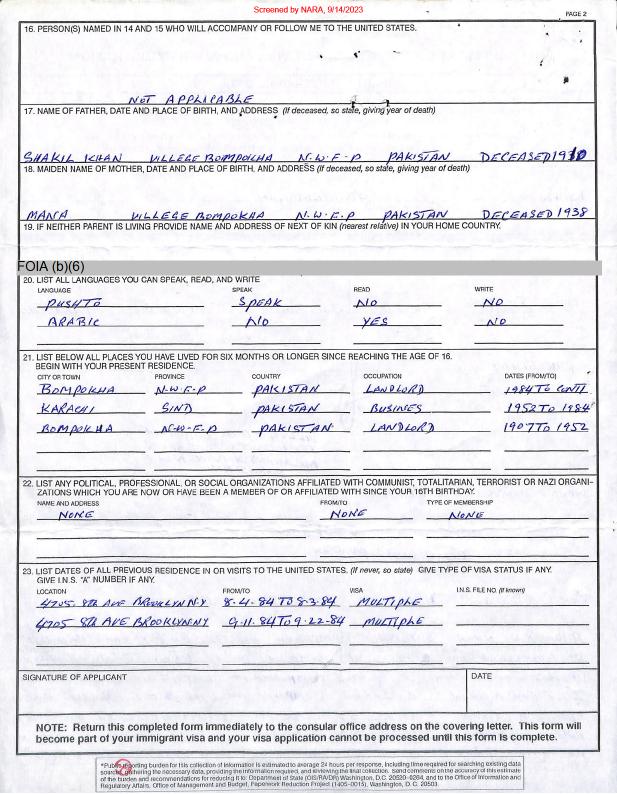 Screened by NARA, 9/14/2023
PAGE 2
16. PERSON(S) NAMED IN 14 AND 15 WHO WILL ACCOMPANY OR FOLLOW ME TO THE UNITED STATES.
NOT APPLICABLE
17. NAME OF FATHER, DATE AND PLACE OF BIRTH, AND ADDRESS (If deceased, so state, giving year of death)
SHAKIL KHAN VILLEGE BOMPOKHA N.W.F-P PAKISTAN DECEASED
18. MAIDEN NAME OF MOTHER, DATE AND PLACE OF BIRTH, AND ADDRESS (If deceased, so state, giving year of death)
MANA VILLEGE BOMPOKHA N.W.F.P PAKISTAN DECEASED 1938
19. IF NEITHER PARENT IS LIVING PROVIDE NAME AND ADDRESS OF NEXT OF KIN (nearest relative) IN YOUR HOME COUNTRY.
FOIA (b)(6)
20. LIST ALL LANGUAGES YOU CAN SPEAK, READ, AND WRITE
LANGUAGE SPEAK READ WRITE
PUSHTO SPEAK NO NO
ARABIC NO YES NO
21. LIST BELOW ALL PLACES YOU HAVE LIVED FOR SIX MONTHS OR LONGER SINCE REACHING THE AGE OF 16.
BEGIN WITH YOUR PRESENT RESIDENCE.
CITY OR TOWN PROVINCE COUNTRY OCCUPATION DATES (FROM/TO)
BOMPOKHA N-W-F-P PAKISTAN LANDLORD 1984 TO CONTI
KARACHI SIND PAKISTAN BUSINES 1952 TO 1984
BOMPOKHA N-W-F-P PAKISTAN LANDLORD 1907 TO 1952
22. LIST ANY POLITICAL, PROFESSIONAL, OR SOCIAL ORGANIZATIONS AFFILIATED WITH COMMUNIST, TOTALITARIAN, TERRORIST OR NAZI ORGANI-
ZATIONS WHICH YOU ARE NOW OR HAVE BEEN A MEMBER OF OR AFFILIATED WITH SINCE YOUR 16TH BIRTHDAY.
NAME AND ADDRESS FROM/TO TYPE OF MEMBERSHIP
NONE NONE NONE
23. LIST DATES OF ALL PREVIOUS RESIDENCE IN OR VISITS TO THE UNITED STATES. (If never, so state) GIVE TYPE OF VISA STATUS IF ANY.
GIVE I.N.S. "A" NUMBER IF ANY.
LOCATION FROM/TO VISA I.N.S. FILE NO. (If known)
4705 8TH AVE BROOKLYN N.Y 8-4-84 TO 8-3-84 MULTIPLE
4705 8TH AVE BROOKLYN NY 9-11-84 TO 9-22-84 MULTIPLE
SIGNATURE OF APPLICANT DATE
NOTE: Return this completed form immediately to the consular office address on the covering letter. This form will
become part of your immigrant visa and your visa application cannot be processed until this form is complete.
*Public reporting burden for this collection of information is estimated to average 24 hours per response, including time required for searching existing data
sources, gathering the necessary data, providing the information required, and reviewing the final collection. Send comments on the accuracy of this estimate
of the burden and recommendations for reducing it to: Department of State (OIS/RA/DR) Washington, D.C. 20520-0264, and to the Office of Information and
Regulatory Affairs, Office of Management and Budget, Paperwork Reduction Project (1405-0015), Washington, D.C. 20503.